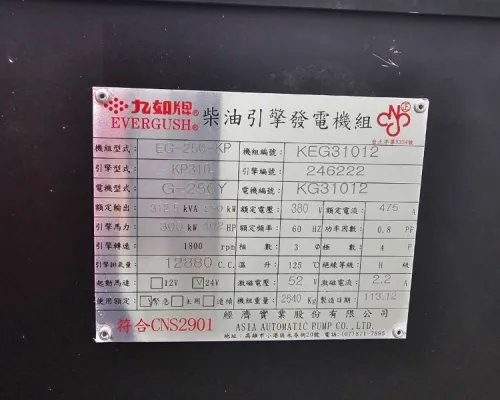 九如牌® EVERGUSH® 柴油引擎發電機組
機組型式: EG-250-KP 機組編號: KEG31012
引擎型式: KP310 引擎編號: 246222
電機型式: G-250Y 電機編號: KG31012
額定輸出: 312.5 kVA 250 kW 額定電壓: 380 V 額定電流: 475 A
引擎馬力: 300 kW 402 HP 額定頻率: 60 HZ 功率因數: 0.8 PF
引擎轉速: 1800 rpm 相數: 3 Φ 極數: 4 P
引擎排氣量: 12880 C.C. 溫升: 125 ℃ 絕緣等級: H 級
起動馬達: 12V V 24V 激磁電壓: 52 V 激磁電流: 2.2 A
使用額定: V 緊急 主用 連續 機組重量: 2640 Kg 製造日期: 113.12
符合CNS2901 經濟實業股份有限公司
ASIA AUTOMATIC PUMP CO., LTD.